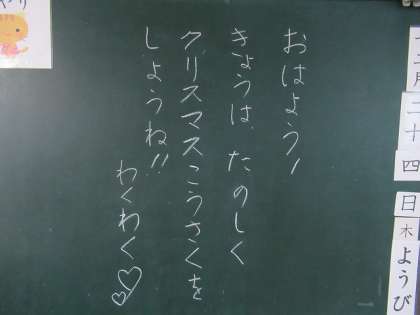 おはよう!
きょうは、たのしく
クリスマスこうさくを
しようね!!
わくわく♡♡
二十四
日
木
ようび